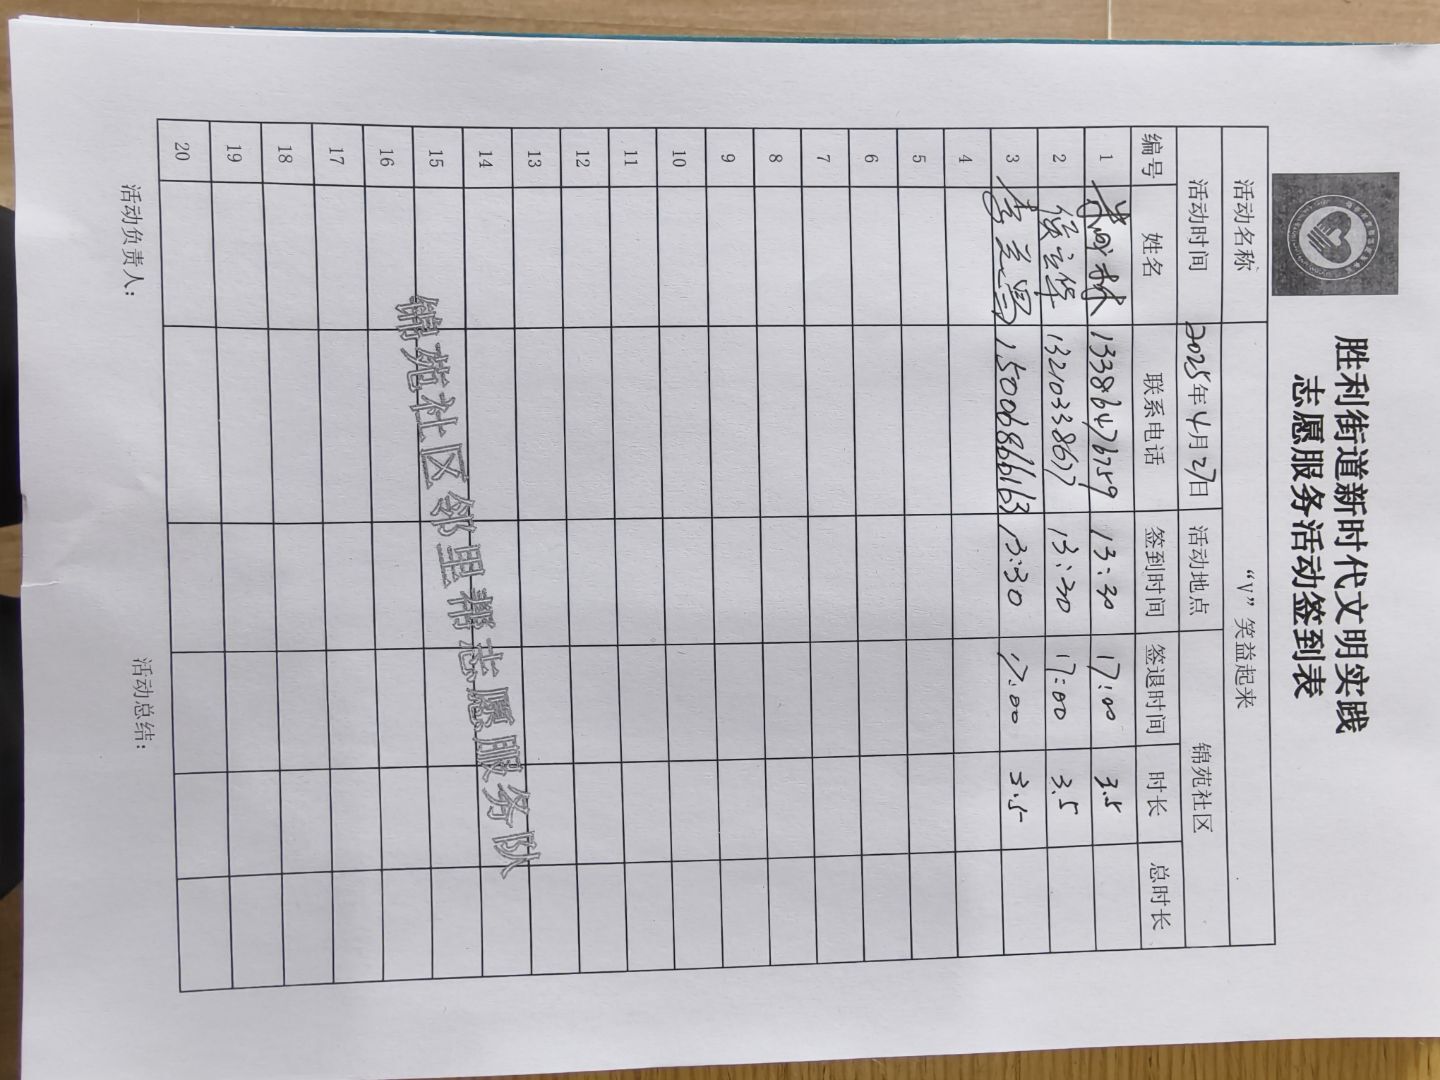 胜利街道新时代文明实践
志愿服务活动签到表
活动名称 “V”笑益起来
活动时间 2025年4月27日 活动地点 锦苑社区
编号 姓名 联系电话 签到时间 签退时间 时长 总时长
1 13386476759 13:30 17:00 3.5
2 侯立华 13210338677 13:30 17:00 3.5
3 李兰鳳 15006866163 13:30 17:00 3.5
4
5
6
7
8
9
10
11
12
13
14
15
16
17
18
19
20
锦苑社区邻里帮志愿服务队
活动负责人: 活动总结: